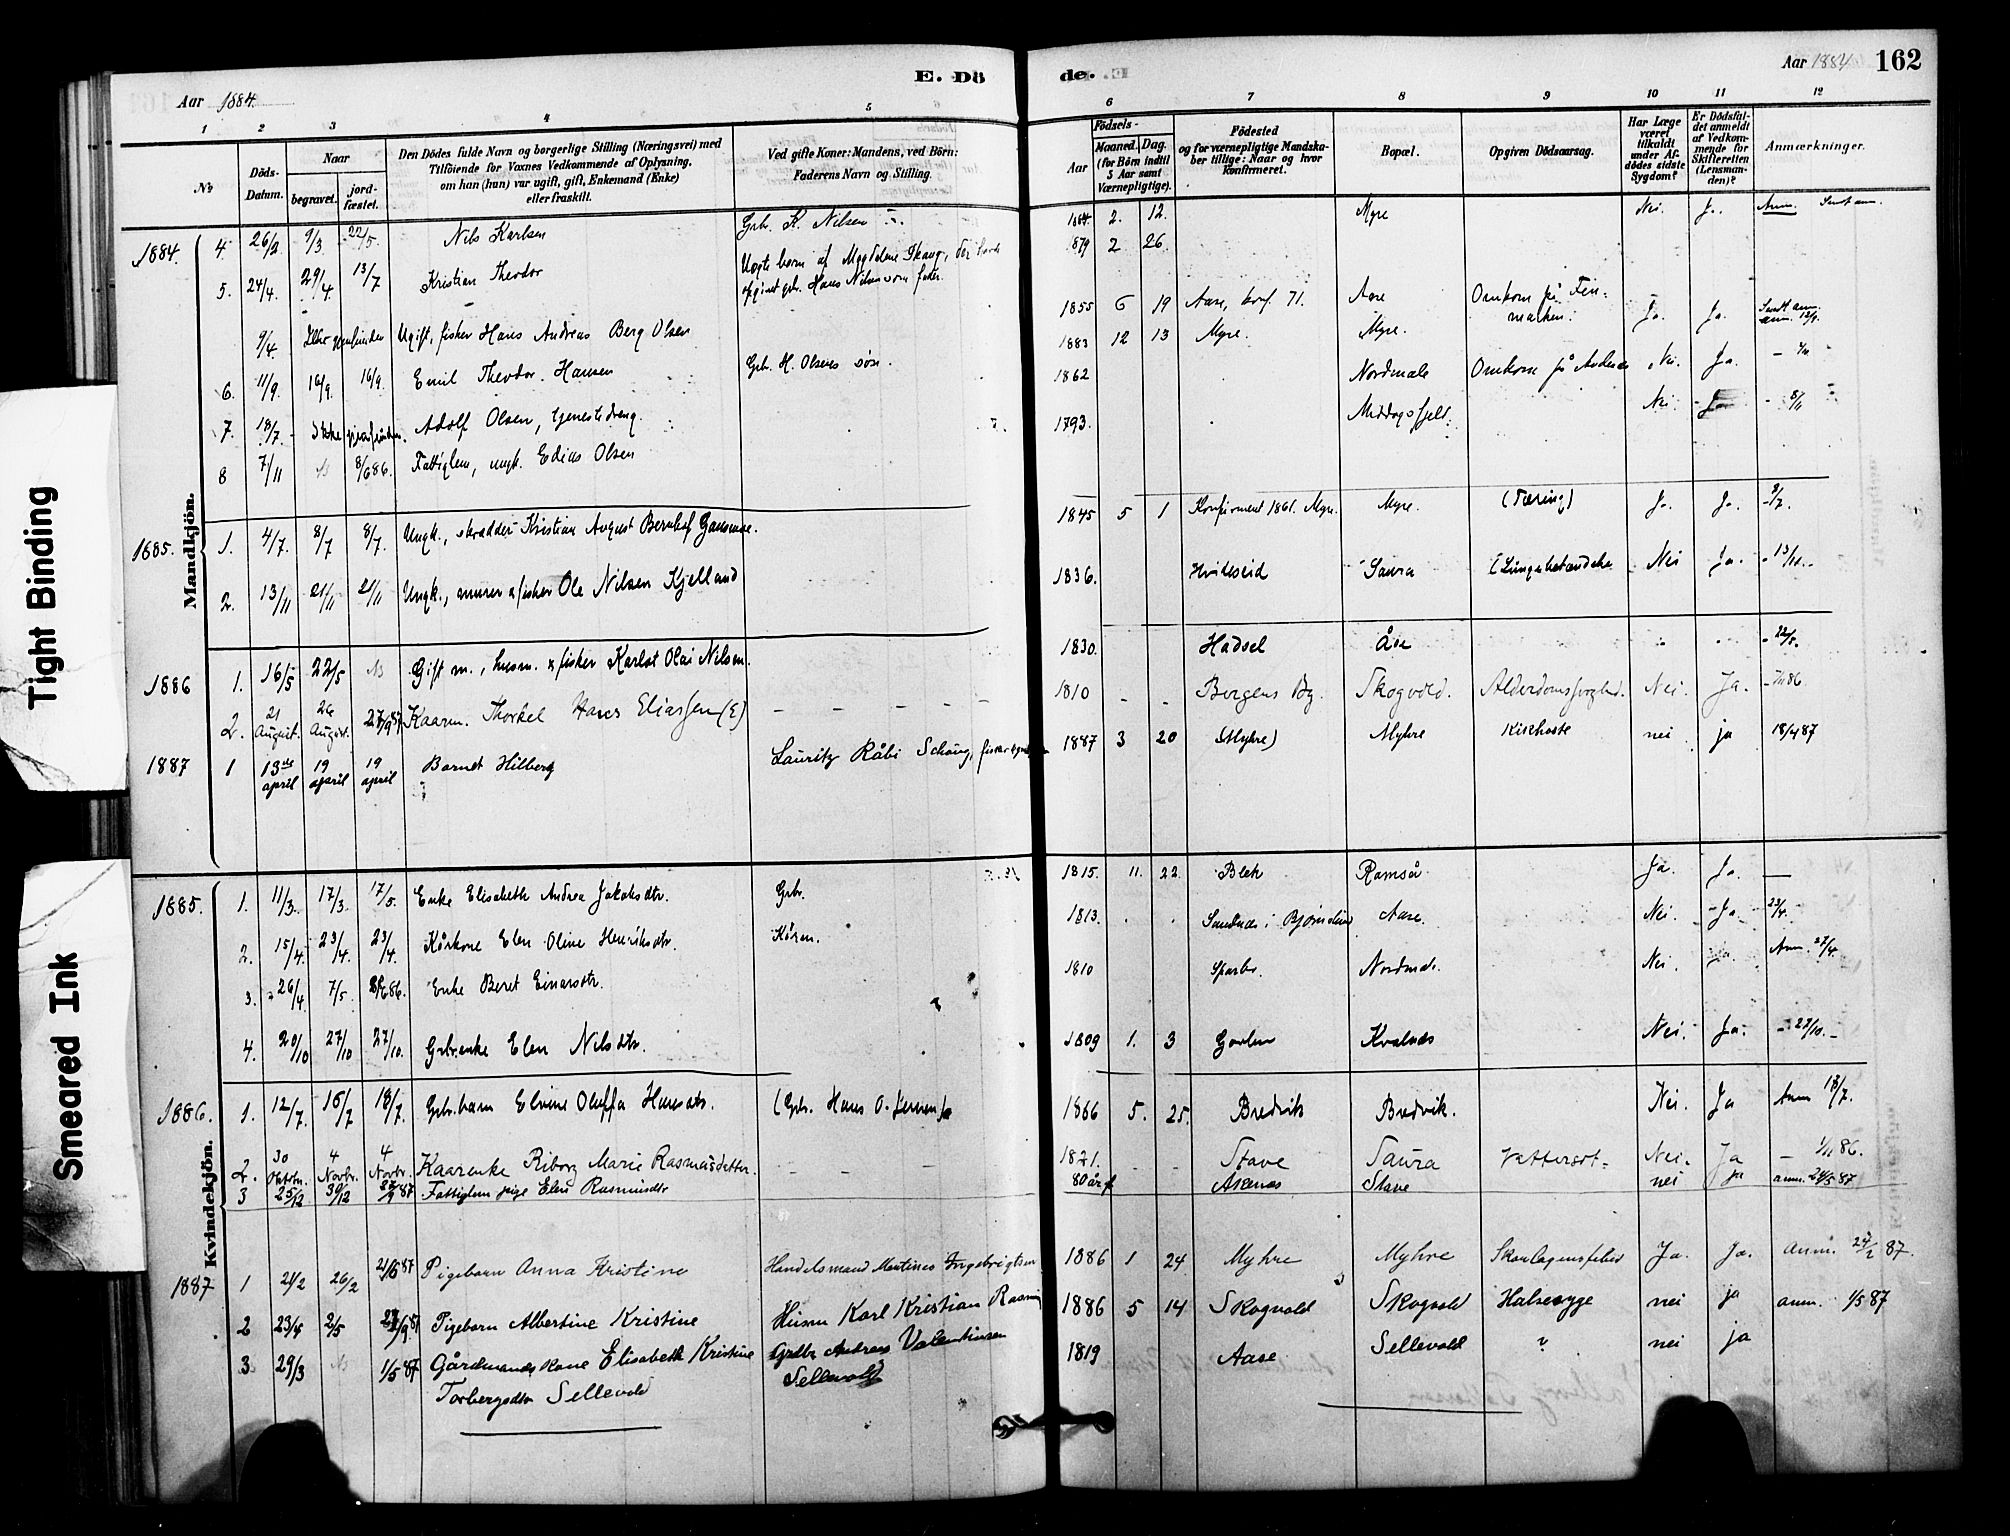 Tight Binding
Smeared Ink
E. Dö
de.
Aar 1884.
Aar 1884
162
1 2 3 4 5
6 7 8 9 10 11 12
No
Döds-Datum.
Naar
begravet.
jord-fæstet.
Den Dödes fulde Navn og borgerlige Stilling (Næringsvei) med
Tilföiende for Voxnes Vedkommende af Oplysning,
om han (hun) var ugift, gift, Enkemand (Enke)
eller fraskilt.
Ved gifte Koner: Mandens, ved Börn:
Faderens Navn og Stilling.
Födsels-
Aar
Maaned. Dag.
(for Börn indtil
5 Aar samt
Værnepligtige).
Födested
og for værnepligtige Mandska-
ber tillige: Naar og hvor
konfirmeret.
Bopæl.
Opgiven Dödsaarsag.
Har Læge
været
tilkaldt
under Af-
dödes sidste
Sygdom?
Er Dödsfal-
det anmeldt
af Vedkom-
mende for
Skifteretten
(Lensman-
den)?
Anmærkninger.
Mandkjön.
1884. 4. 26/2 9/3 22/5 Nils Karlsen Grb. K. Nilsen 1884 2. 12. Myre Nei. Ja. Anm.
5. 24/4. 29/4. 13/7 Kristian Theodor Uægte barn af Magdalene Skaug, der havde
opgivet gb. Hans Nilsen som fader. 1879 2 26
9/4 Ugift, fisker Hans Andreas Berg Olsen 1855 6 19 Aase, konf. 71. Aase Omkom på Fin-
marken. Ja. Ja.
6. 11/9. 16/9. 16/9. Emil Theodor Hansen Grb. H. Olsens søn. 1883 12 13 Myre. Myre.
7. 18/7. Adolf Olsen, tjenestedreng. 1862 Nordmæle Omkom på Andenes Nei. Ja.
8 7/11 8/6 86. Fattiglem, ungk. Edias Olsen 1793. Middagsfjeld. Nei. Ja. 8/11
1885. 1. 4/7. 8/7 8/7. Ungk., skrædder Kristian August Bernhof 1845 5 1 Konfirmeret 1861. Myre. Myre. (Tæring) Ja. Ja. 9/7.
2. 13/11 21/11 21/11 Ungk., murer & fisker Ole Nilsen Kjelland 1836. Hviteseid Saura Nei Ja. 13/11.
1886 1. 16/5 22/5 Gift m., husm. & fisker Karlot Olai Nilsen. 1830. Hadsel Åse 22/5.
2. 21 August. 26 August. 27/9 87 Kaarm. Thorkel Hans Eliassen (E) 1810 Bergens By. Skogvold. Alderdomssvaghed. Nei. Ja. 7/11 86
1887 1 13de april 19 april 19 april Barnet Hilberg Lauritz Råbi Schåug, 1887 3 20 (Myhre) Myhre Kikhoste nei ja 18/4 87
Kvindekjön.
1885. 1. 11/3. 17/3. 17/5. Enke Elisabeth Andrea Jakobsdtr. Grb. 1815. 11. 22. Blek Ramså Ja. Ja. —
2. 15/4. 23/4. 23/4. Kårkone Elen Oline Henriksdtr. Kårm. 1813. Aase. Nei. Ja. 23/4.
3. 26/4 7/5. 8/6 86. Enke Beret Einarsdtr. 1810 Sparbu. Nordmæle. Nei. Ja. Anm. 27/4.
4. 20/10 27/10 27/10. Grb.enke Elen Nilsdtr. 1809 1. 3 Kvalnæs Nei. Ja. 27/10.
1886. 1. 12/7. 18/7 18/7. Grb.barn Elvine Oluffa Hansdtr. (Grb. Hans O. Jensen) 1866 5. 25. Bredvik Bredvik. Nei. Ja Anm 18/7.
2. 30 Oktbr. 4 Novbr. 4 Novbr. Kaarenke Riborg Marie Rasmusdatter. 1821. Stave Saura Vattersot Nei. Ja 1/11 86.
3 25/12 30/12 27/9 87 Fattiglem pige Elen Rasmusdtr 80 år gl. Akenæs Stave nei ja anm. 24/5 87
1887 1 21/2 26/2 21/6 87 Pigebarn Anna Kristine Handelsmand Martines Ingebrigtsen 1886 1 24 Myhre Myhre Skarlagensfeber Ja. Ja. Anm. 24/2 87.
2 23/4 2/5 27/9 87 Pigebarn Albertine Kristine Husm Karl Kristian Rasmus 1886 5 14 Skogvold Skogvold Halsesyge nei ja anm. 1/5 87
3 29/3 1/5 87 Gårdmandskone Elisabeth Kristine
Torbergsdtr Sellevold Grdbr Andreas Valentinsen
Sellevold 1819 Aase Sellevold ? nei ja